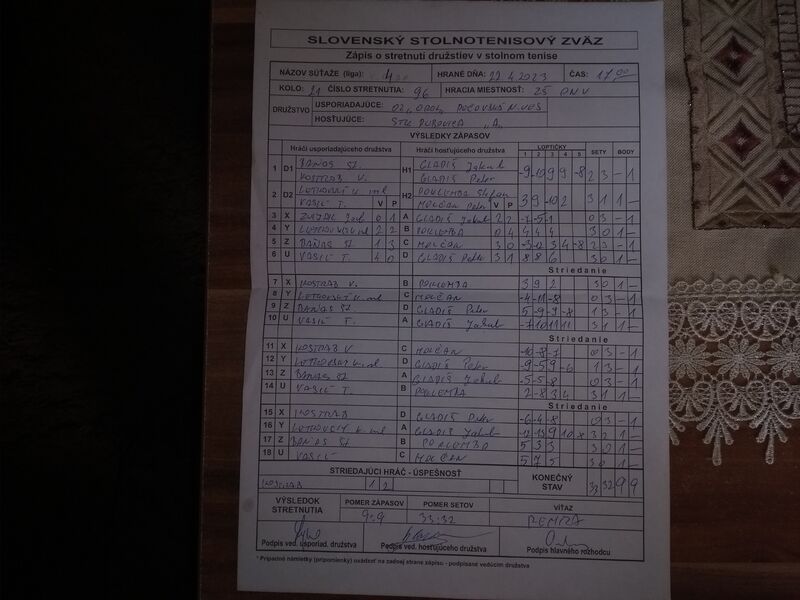 SLOVENSKÝ STOLNOTENISOVÝ ZVÄZ
Zápis o stretnutí družstiev v stolnom tenise
NÁZOV SÚŤAŽE (liga): 4 HRANÉ DŇA: 22.4.2023 ČAS: 17 00
KOLO: 21 ČÍSLO STRETNUTIA: 96 HRACIA MIESTNOSŤ: 25 PNV
DRUŽSTVO USPORIADAJÚCE:
HOSŤUJÚCE: "A"
VÝSLEDKY ZÁPASOV
Hráči usporiadajúceho družstva Hráči hosťujúceho družstva LOPTIČKY SETY BODY
1 2 3 4 5
1 D1 BAŇAS ST. H1 GLADIŠ Jakub -9 -10 9 9 -8 2 3 - 1
KOSTRAB V. GLADIŠ Peter
2 D2 H2 3 9 -10 2 3 1 1 -
VASIĽ T. V P MOLČAN Peter V P
3 X 0 1 A GLADIŠ Jakub 2 2 0 3 - 1
4 Y 2 2 B POKLEMBA 0 4 4 4 4 3 0 1 -
5 Z BAŇAS ST 1 3 C MOLČAN 3 0 2 3 - 1
6 U VASIĽ T. 4 0 D GLADIŠ Peter 3 1 8 8 6 3 0 1 -
Striedanie
7 X KOSTRAB V. B POKLEMBA 3 9 2 3 0 1 -
8 Y C MOLČAN -4 -11 -8 0 3 - 1
9 Z BAŇAS ST D GLADIŠ Peter 5 -9 -9 -8 1 3 - 1
10 U VASIĽ T. A GLADIŠ Jakub -7 10 11 11 3 1 1 -
Striedanie
11 X KOSTRAB V C MOLČAN -10 -8 -7 0 3 - 1
12 Y D GLADIŠ Peter -9 -5 9 -6 1 3 - 1
13 Z BAŇAS ST A GLADIŠ Jakub -5 -5 -8 0 3 - 1
14 U VASIĽ T. B POKLEMBA 2 -8 3 4 3 1 1 -
Striedanie
15 X KOSTRAB D GLADIŠ Peter -6 -4 -8 0 3 - 1
16 Y A GLADIŠ Jakub 9 10 8 3 2 1 -
17 Z BAŇAS ST. B POKLEMBA 5 3 3 3 0 1 -
18 U VASIĽ C MOLČAN 5 7 5 3 0 1 -
STRIEDAJÚCI HRÁČ - ÚSPEŠNOSŤ KONEČNÝ
KOSTRAB 1 2 STAV 33 32 9 9
VÝSLEDOK STRETNUTIA POMER ZÁPASOV POMER SETOV VÍŤAZ
9:9 33:32 REMÍZA
Podpis ved. usporiad. družstva Podpis ved. hosťujúceho družstva Podpis hlavného rozhodcu
* Prípadné námietky (pripomienky) uvádzať na zadnej strane zápisu - podpísané vedúcim družstva